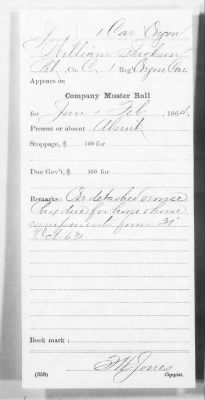 1 Cav. Oregon
William
Pvt., Co. C, 1 Reg't Oregon Cav.
Appears on
Company Muster Roll
for Jan & Feb, 1864.
Present or absent Absent
Stoppage, $ 100 for
Due Gov't, $ 100 for
Remarks: On detached service
Pay due for horse & horse
equipments from 31
Oct. 63
Book mark:
Jones
(358) Copyist.